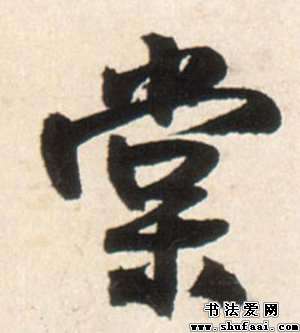 棠
书法爱网
www.shufaai.com